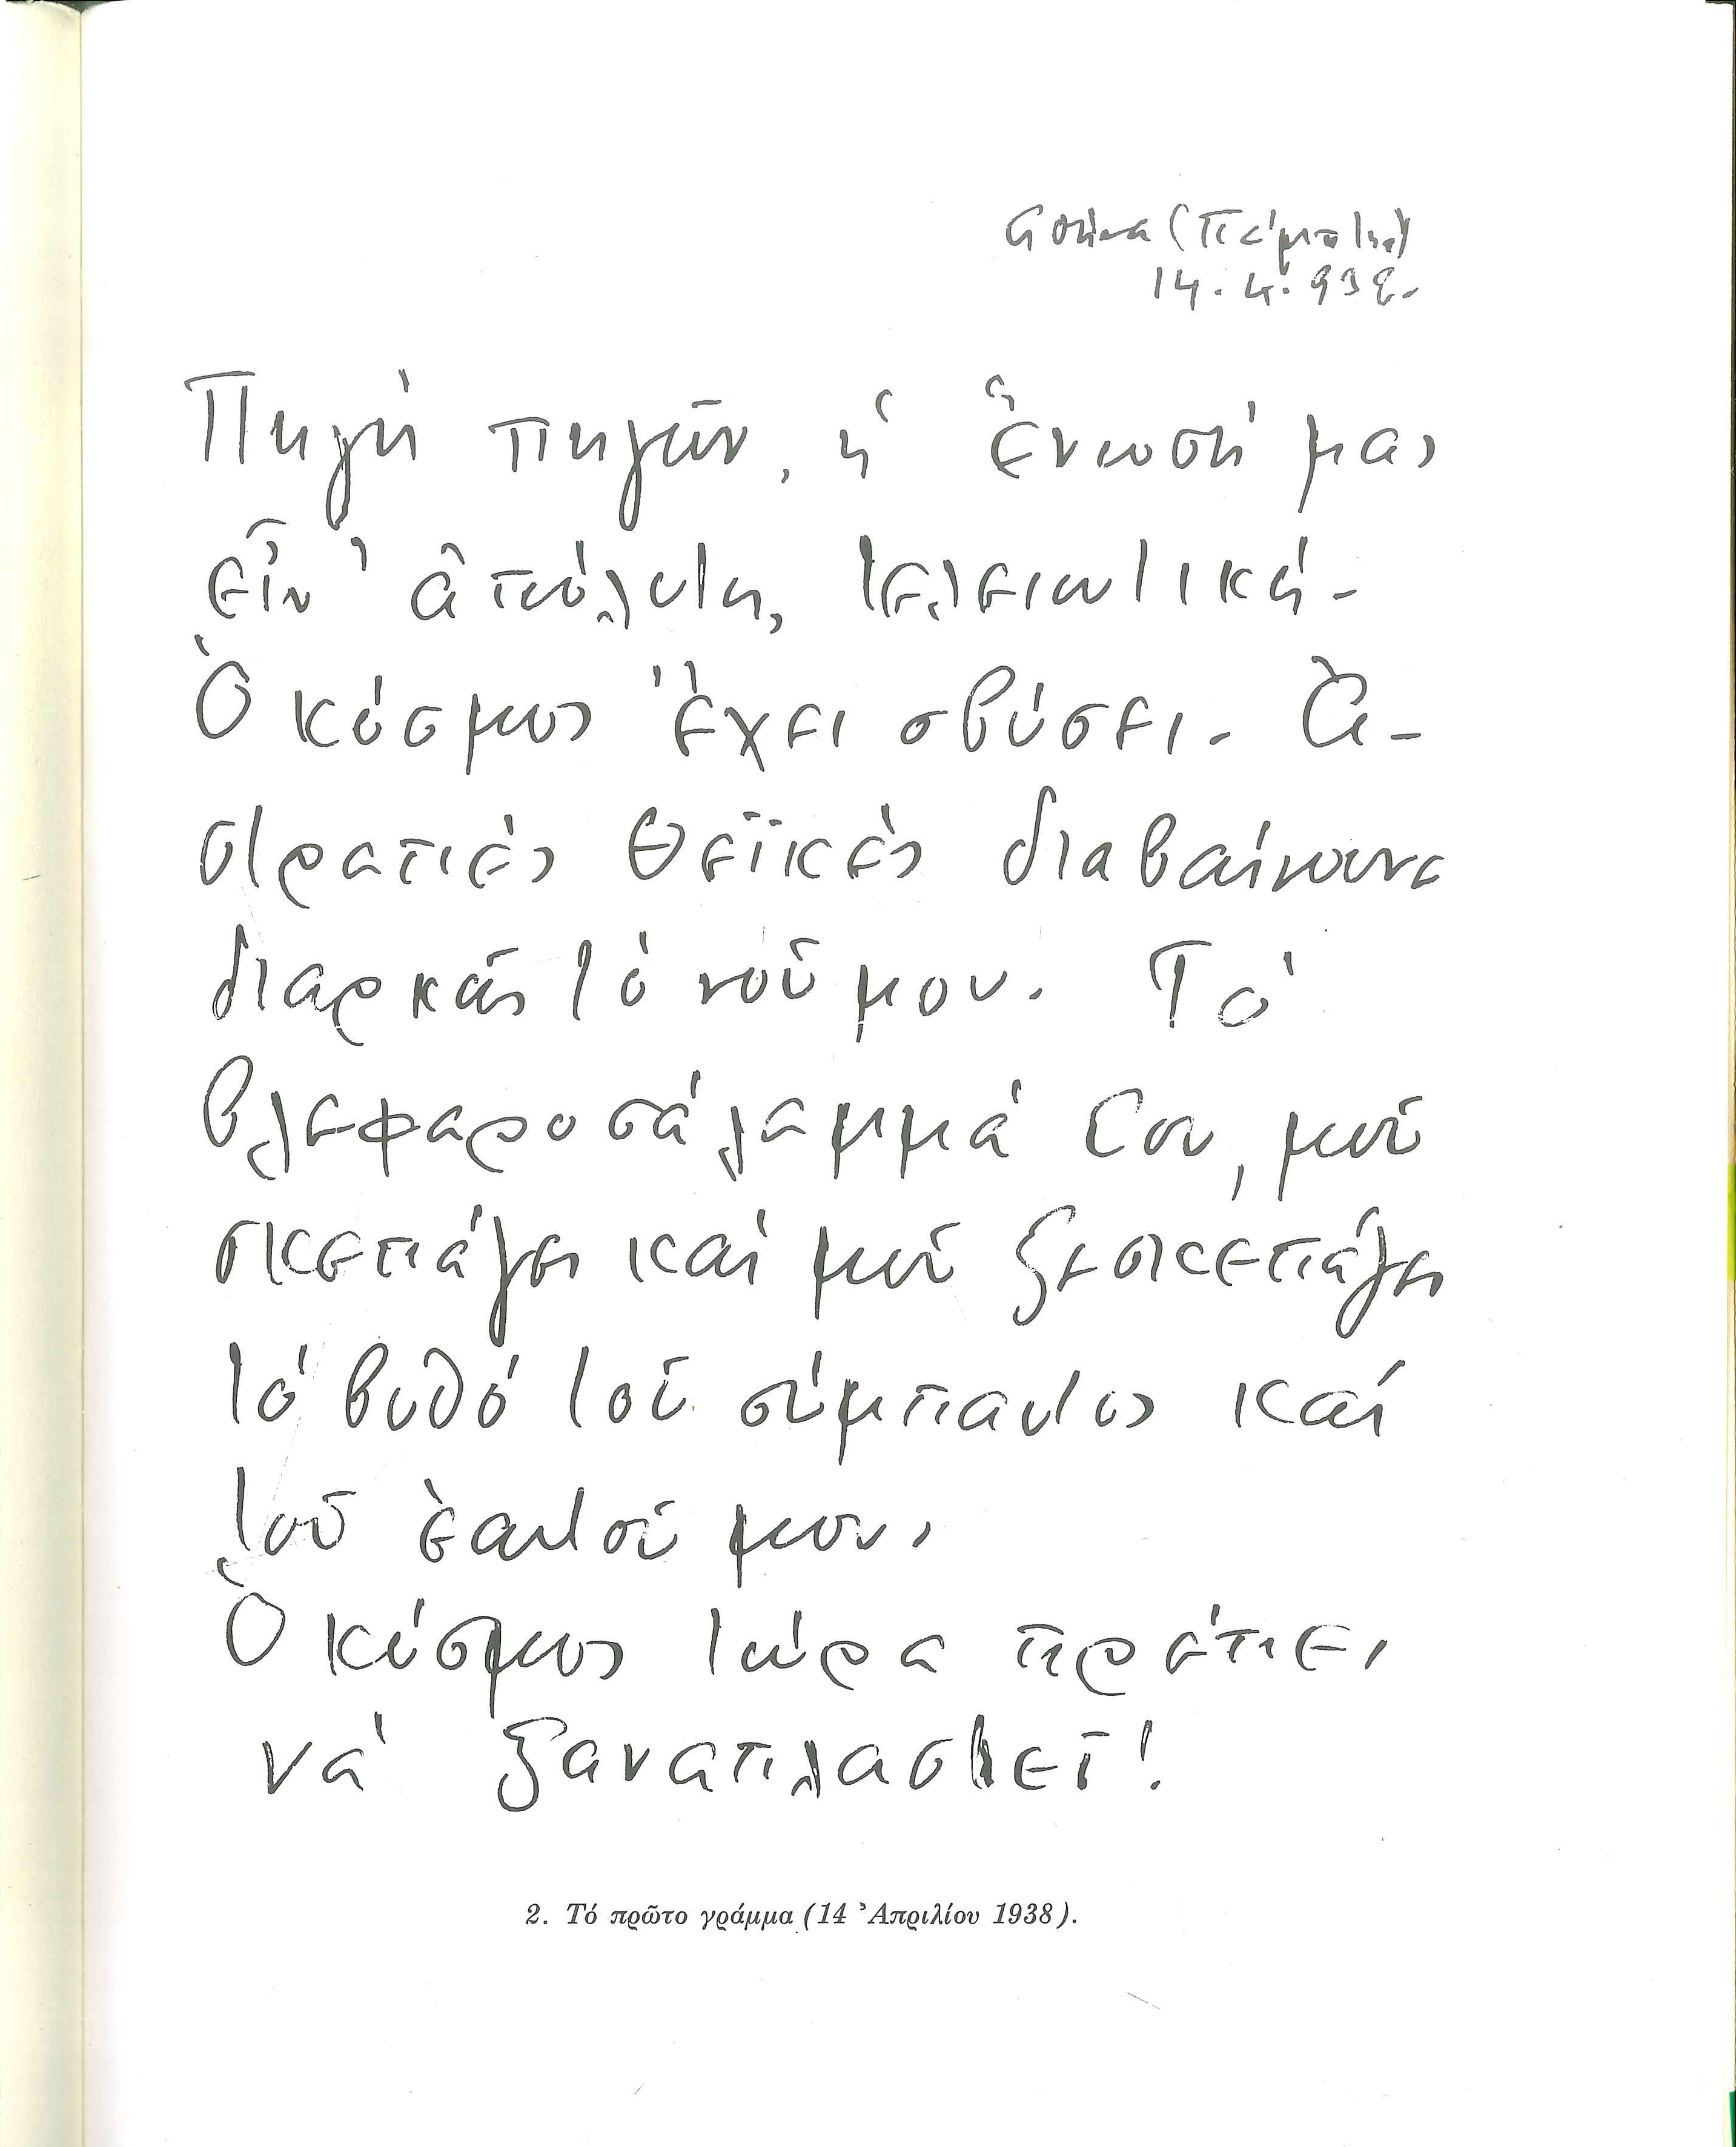 Ἀθήνα (Πέμπτη)
14.4.938.
Πηγή πηγῶν, ἡ ἕνωσή μας
εἶν' ἀπόλυτη, τελειωτική.
Ὁ κόσμος ἔχει σβύσει. Ἀ-
στραπές θεϊκές διαβαίνουνε
διαρκῶς τό νοῦ μου. Τό
βλεφαροσάλαμμά Σου, μοῦ
σκεπάζει καί μοῦ ξεσκεπάζει
τό βυθό τοῦ σύμπαντος καί
τοῦ ἑαυτοῦ μου.
Ὁ κόσμος τώρα πρέπει
νά ξαναπλασθεῖ!
2. Τό πρῶτο γράμμα (14 Ἀπριλίου 1938).